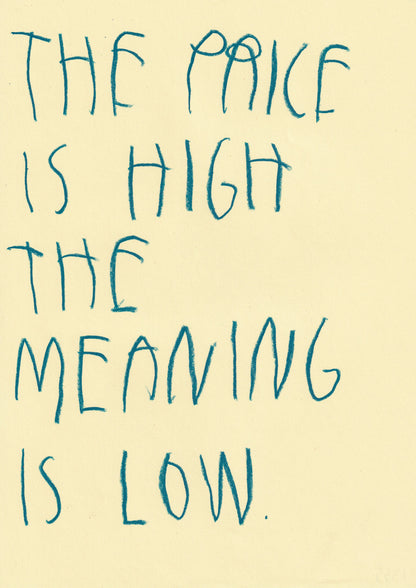 THE PRICE
IS HIGH
THE
MEANING
IS LOW.